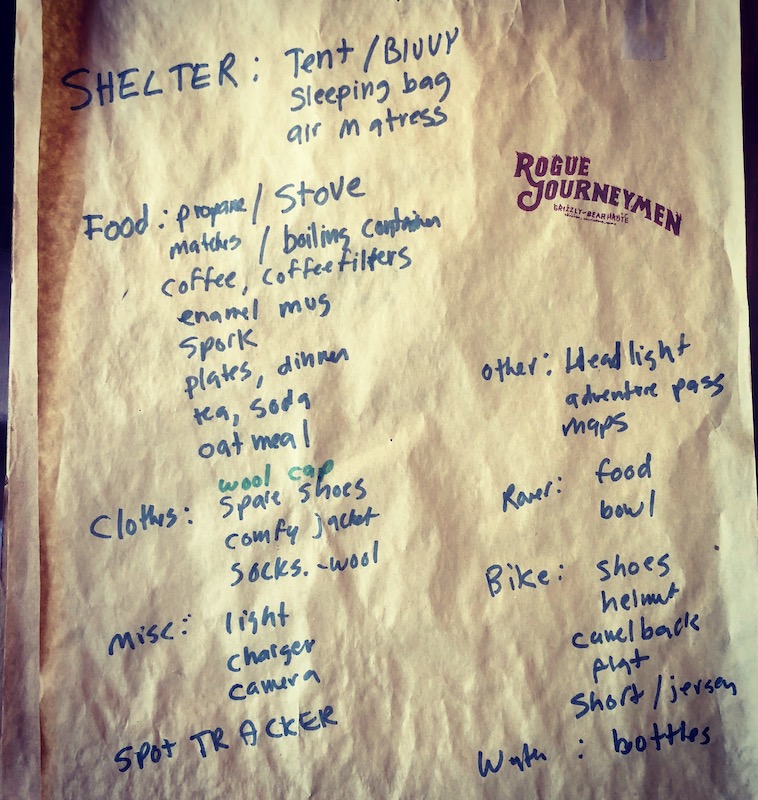 SHELTER: Tent / BIVVY
Sleeping bag
air matress
ROGUE
JOURNEYMEN
Food: propane / Stove
matches / boiling container
coffee, coffee filters
enamel mug
Spork
plates, dinner
tea, soda
oatmeal
other: Headlight
adventure pass
maps
wool cap
Cloths: Spare shoes
comfy jacket
socks. -wool
food
bowl
misc: light
charger
camera
SPOT TRACKER
Bike: shoes
helmut
camelback
Short / jersey
Water: bottles